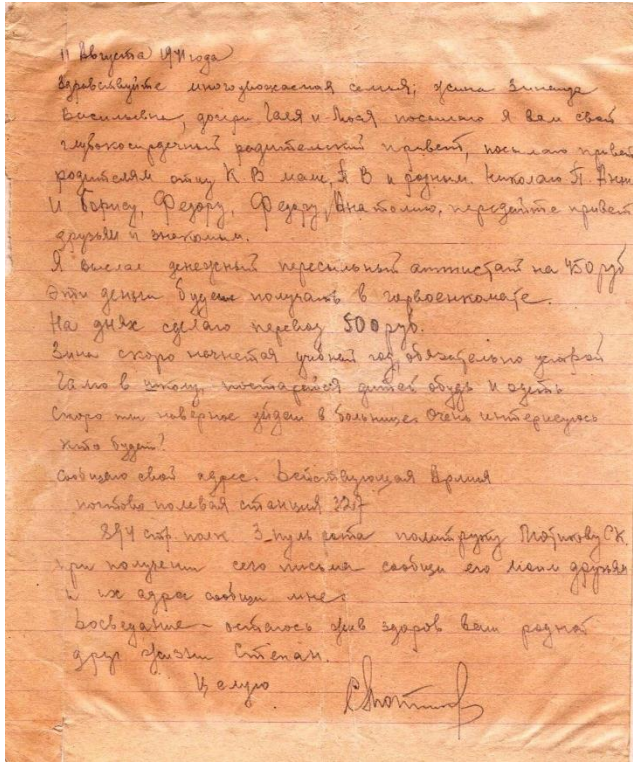 11 Августа 1941 года
Здравствуйте многоуважаемая семья; жина Зинаида
Васильевна, дочери Галя и Люся посылаю я вам свой
глубокосердечный родительский привет, посылаю привет
родителям отцу К. В маме, П В и родным. Николаю П. Анне
И Борису, Федору, Федору, Анатолию, передайте привет
друзьям и знакомым.
Я выслал денежный пересыльный аттистат на 450 руб
Эти деньги будеш получать в горвоенкомате.
На днях сделаю перевод 500 руб.
Зина скоро начнется учебный год, обязательно устрой
Галю в школу, постарайся детей обудь и одеть
Скоро ты наверное зйдеш в больнице. Очень интересуюсь
кто будет?
Сообщаю свой адрес. Действующая Армия
почтово полевая станция 327
894 стр. полк 3 пуль рота политруку С.К.
при получении сего письма сообщи его моим друзям
и их адрес сообщи мне.
Досведание – остаюсь жив здоров ваш родной
друг жизни Степан.
Целую